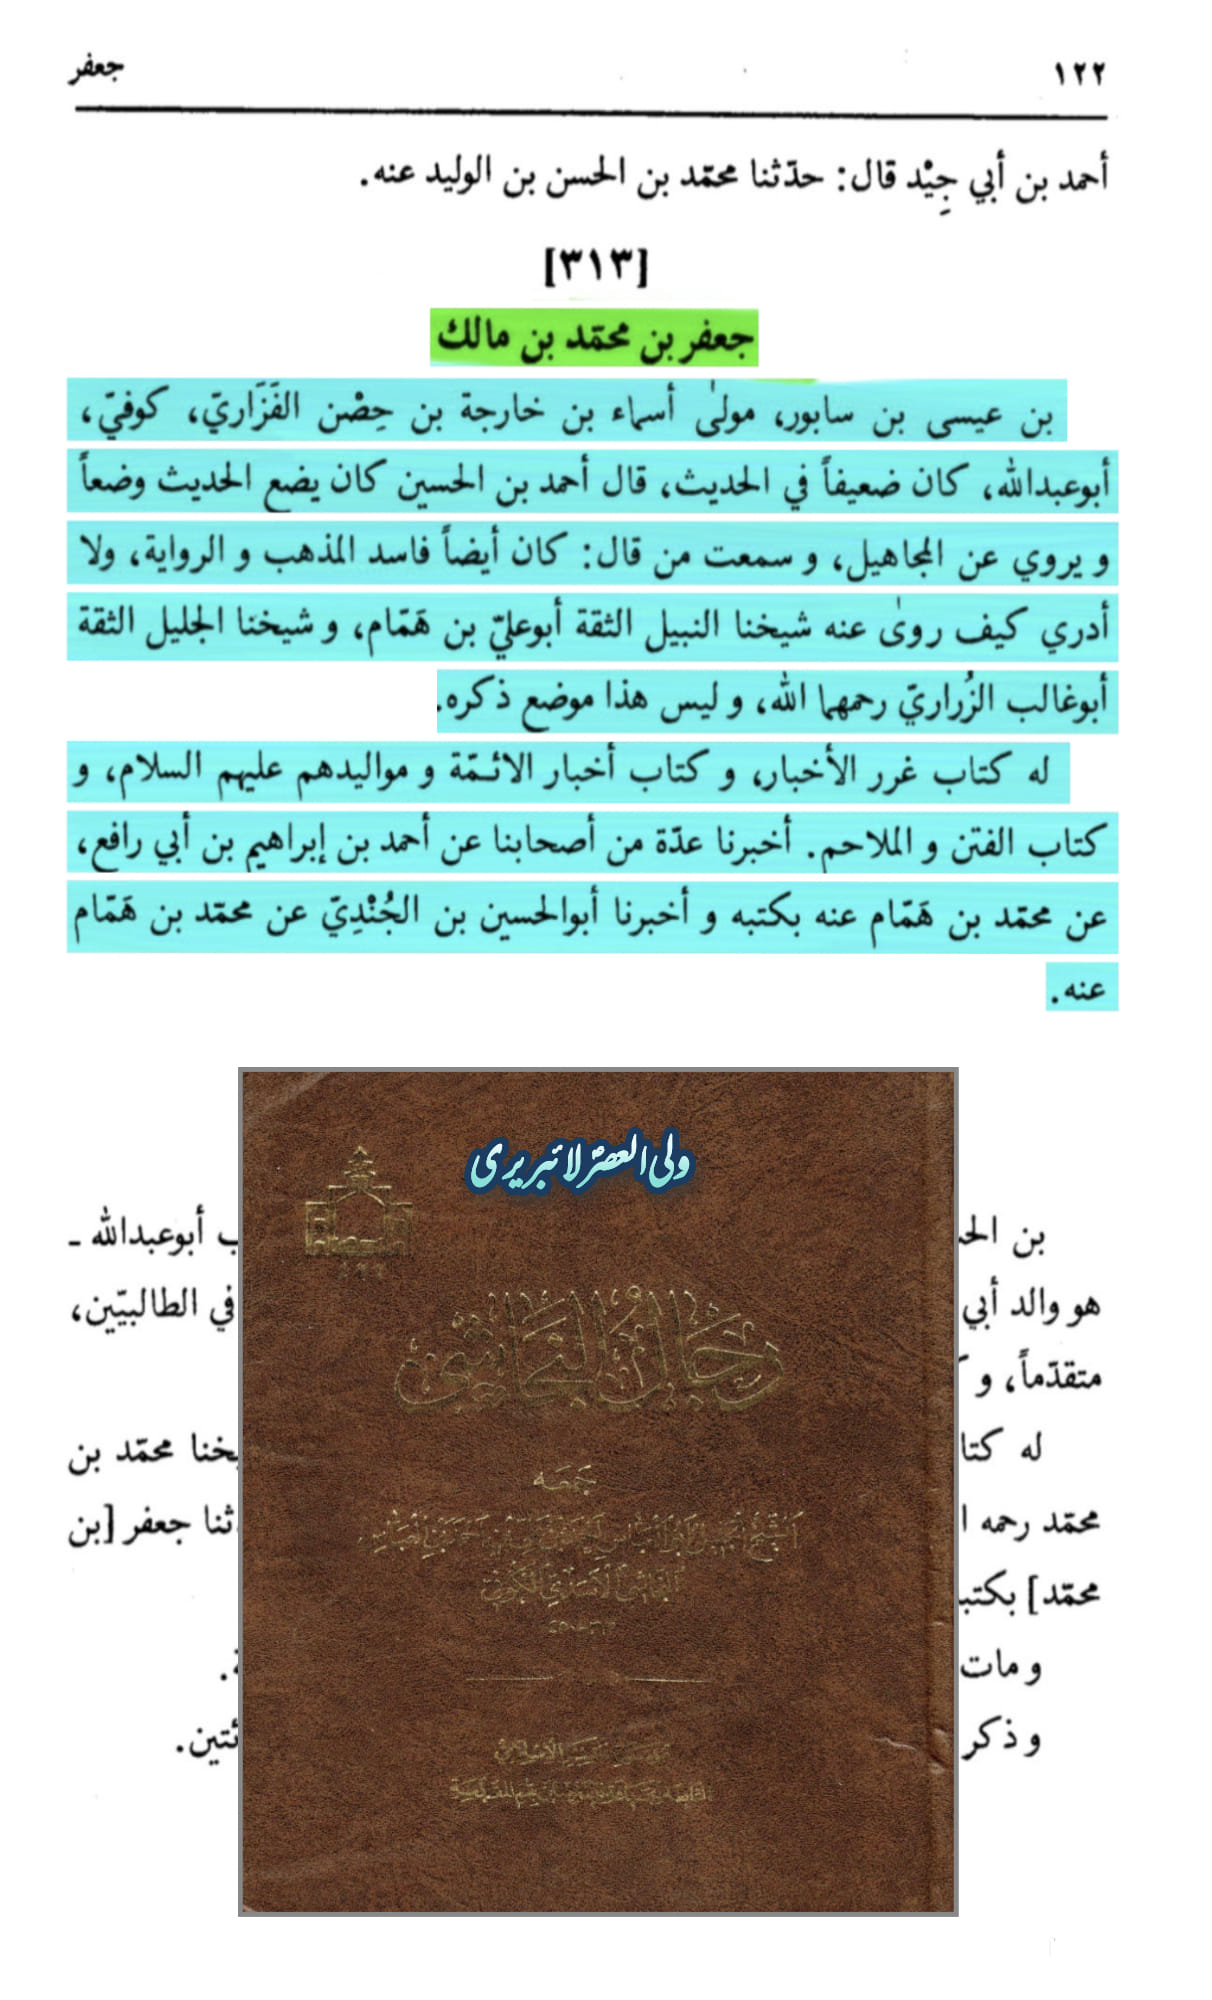 ١٢٢ جعفر
أحمد بن أبي جِيْد قال: حدّثنا محمّد بن الحسن بن الوليد عنه.
[٣١٣]
جعفر بن محمّد بن مالك
بن عيسى بن سابور، مولىٰ أسماء بن خارجة بن حِصْن الفَزَاريّ، كوفيّ،
أبوعبدالله، كان ضعيفاً في الحديث، قال أحمد بن الحسين كان يضع الحديث وضعاً
و يروي عن المجاهيل، و سمعت من قال: كان أيضاً فاسد المذهب و الرواية، ولا
أدري كيف روىٰ عنه شيخنا النبيل الثقة أبوعليّ بن هَمّام، و شيخنا الجليل الثقة
أبوغالب الزُراريّ رحمهما الله، و ليس هذا موضع ذكره.
له كتاب غرر الأخبار، و كتاب أخبار الائـمّة و مواليدهم عليهم السلام، و
كتاب الفتن و الملاحم. أخبرنا عدّة من أصحابنا عن أحمد بن إبراهيم بن أبي رافع،
عن محمّد بن هَمّام عنه بكتبه و أخبرنا أبوالحسين بن الجُنْدِيّ عن محمّد بن هَمّام
عنه.
ولی العصر لائبریری
رجال النجاشي
بن أبوعبدالله ـ
هو والد أبي في الطالبيّين،
متقدّماً، و
له محمّد بن
محمّد رحمه جعفر [بن
محمّد]
و مات
و ذكر